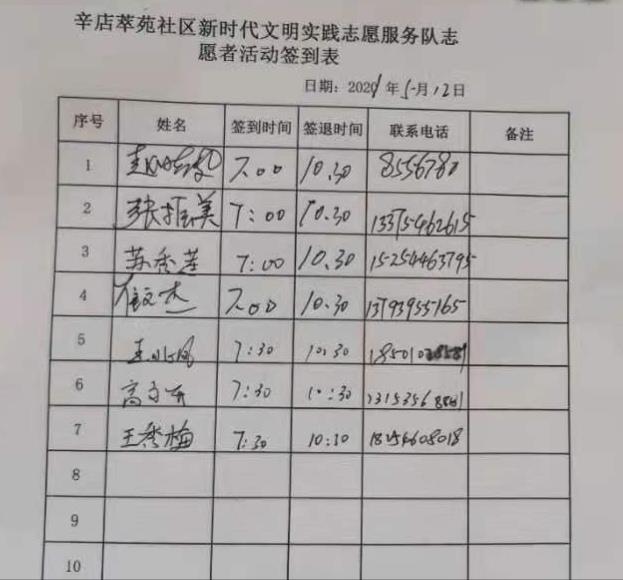 辛店萃苑社区新时代文明实践志愿服务队志
愿者活动签到表
日期：2021年5月12日
序号 姓名 签到时间 签退时间 联系电话 备注
1 7.00 10.30 8556780
2 张振美 7:00 10.30 13375462615
3 苏秀莲 7:00 10.30 15254463795
4 崔文杰 7.00 10.30 13793955165
5 7:30 10:30
6 7:30 10:30
7 王秀梅 7:30 10:30
8
9
10